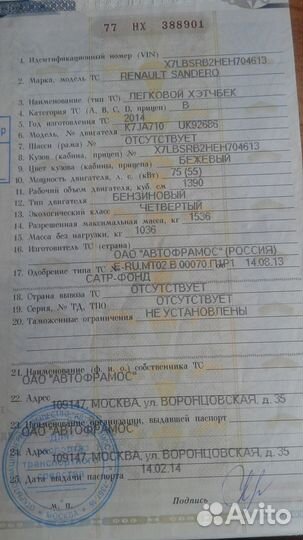 77 НХ 388901
1. Идентификационный номер (VIN) X7LBSRB2HEH704613
2. Марка, модель ТС RENAULT SANDERO
3. Наименование (тип ТС) ЛЕГКОВОЙ ХЭТЧБЕК
4. Категория ТС (А, В, С, D, прицеп) B
5. Год изготовления ТС 2014
6. Модель, № двигателя K7JA710 UK92686
7. Шасси (рама) № ОТСУТСТВУЕТ
8. Кузов (кабина, прицеп) № X7LBSRB2HEH704613
9. Цвет кузова (кабины, прицепа) БЕЖЕВЫЙ
10. Мощность двигателя, л. с. (кВт) 75 (55)
11. Рабочий объем двигателя, куб. см 1390
12. Тип двигателя БЕНЗИНОВЫЙ
13. Экологический класс ЧЕТВЕРТЫЙ
14. Разрешенная максимальная масса, кг 1536
15. Масса без нагрузки, кг 1036
16. Изготовитель ТС (страна)
ОАО "АВТОФРАМОС" (РОССИЯ)
17. Одобрение типа ТС № E-RU.MT02.B.00070.П2Р1 14.08.13
САТР-ФОНД
18. Страна вывоза ТС ОТСУТСТВУЕТ
19. Серия, № ТД, ТПО ОТСУТСТВУЕТ
20. Таможенные ограничения НЕ УСТАНОВЛЕНЫ
21. Наименование (ф. и. о.) собственника ТС
ОАО "АВТОФРАМОС"
22. Адрес
109147, МОСКВА, ул. ВОРОНЦОВСКАЯ, д. 35
23. Наименование организации, выдавшей паспорт
ОАО "АВТОФРАМОС"
24. Адрес
109147, МОСКВА, ул. ВОРОНЦОВСКАЯ, д. 35
25. Дата выдачи паспорта 14.02.14
М. П.
Подпись
Avito